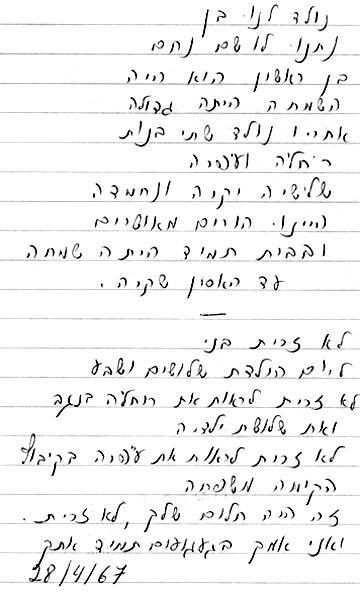 נולד לנו בן
נתנו לו שם נחם
בן ראשון הוא היה
השמחה הייתה גדולה
אחריו נולד שתי בנות
רוחל'ה ועפרה
שלישיה יקרה ונחמדה
היינו הורים מאושרים
ובבית תמיד היתה שמחה
עד האסון שקרה.
לא זכית בני
ליום הולדת שלושים ושבע
לא זכית לראות את רוחל'ה בנגב
ואת שלושת ילדיה
לא זכית לראות את עפרה בקיבוץ
הקימה משפחה
זה היה חלום שלך, לא זכית.
ואני אמך בגעגועים תמיד אתך
28/4/67